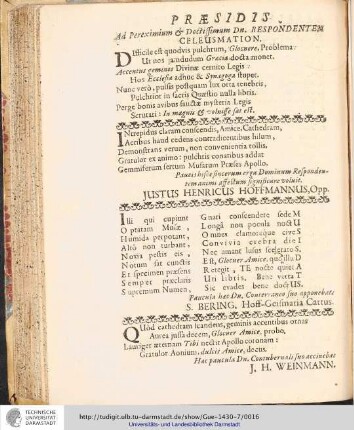 PRÆSIDIS
Ad Pereximium & Doctissimum Dn. RESPONDENTEM
CELEUSMATION.
Difficile est quodvis pulchrum, Glocnere, Problema:
Ut nos jamdudum Græcia docta monet.
Accentus geminos Divinæ cernito Legis:
Hos Ecclesia adhuc & Synagoga stupet.
Nunc verò, pulsis postquam lux orta tenebris,
Pulchrior in sacris Quæstio nulla libris.
Perge bonis avibus sanctæ mysteria Legis
Scrutari: In magnis & voluisse sat est.
Intrepidus claram conscendis, Amice, Cathedram,
Acribus haud cedens contradicentibus
Demonstrans verum, non convenientia tollis.
Gratulor ex animo: pulchris conatibus addat
Gemmiferum sertum Musarum Præses Apollo.
Paucis hisce sinceram erga Dominum Responden-
tem animi affectum significare voluit.
JUSTUS HENRICUS HOFFMANNUS, Opp.
Illi qui cupiunt Gnavi conscendere sede M
Optatam Musæ, Longâ non pocula noctu U
Humida perpotant, Omnes clamoresque cive S
Altò non turbant, Convivia crebra die I
Noxia pestis eis, Nec amant lusus
Notum sat cunctis Est, Glocner Amice, D
Et specimen præsens Retegit, TE noctes quiet A
Semper præclaris Un libris. Bene verta T
Supremum Numen, Sic evades bene doct US.
Paucula hæc Dn. Conterraneo suo opponebat
S. BERING, Hoff-Geismaria Cattus.
Quòd cathedram scandens, geminis accentibus ornas
Aurea passa decem, Glocner Amice, probo,
Lauriger æternam Tibi nectit Apollo coronam:
Gratulor Aonium, dulcis Amice, decus.
Hæc paucula Dn. Contubernali suo accinebat
J. H. WEINMANN.
TECHNISCHE
UNIVERSITÄT
DARMSTADT
http://tudigit.ulb.tu-darmstadt.de/show/Gue-1430-7/0016
Universitäts- und Landesbibliothek Darmstadt